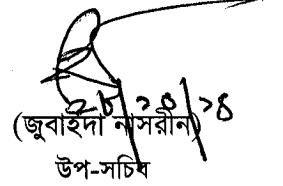 ২৮/১০/১৪
(জুবাইদা নাসরীন)
উপ-সচিব